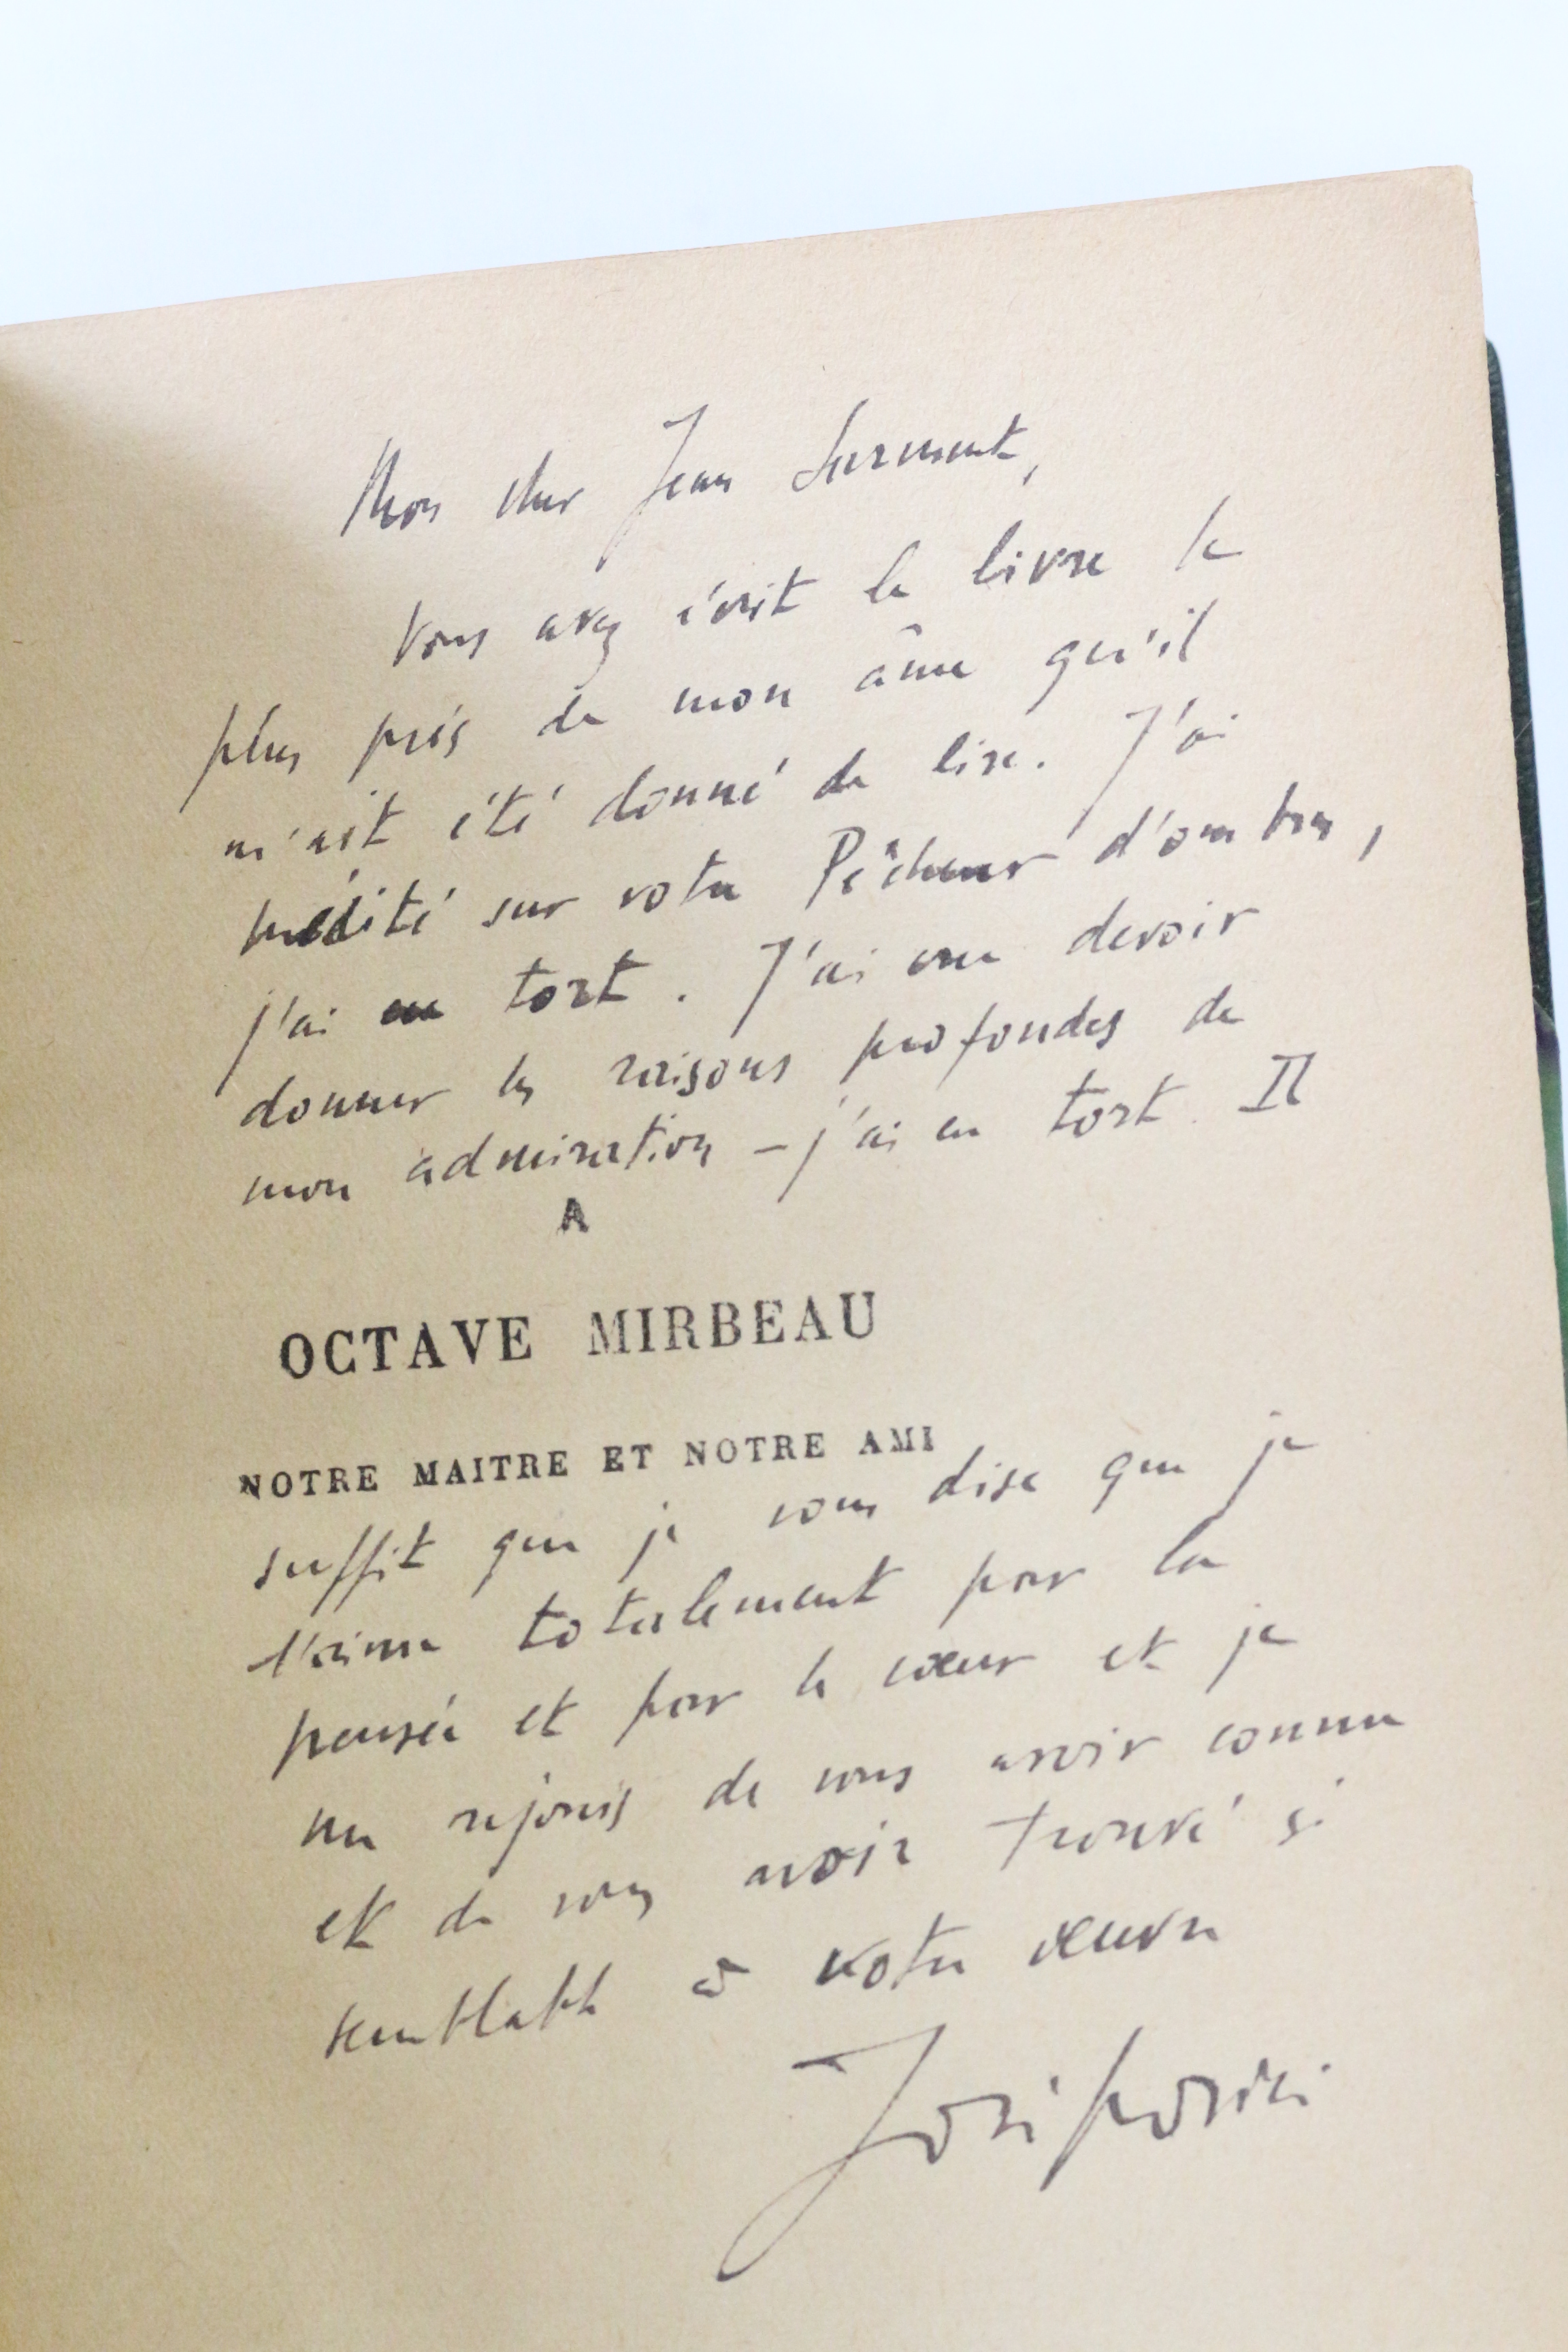 Mon cher Jean Sarment,
Vous avez écrit le livre le
plus près de mon âme qu'il
m'ait été donné de lire. J'ai
médité sur votre Pêcheur d'ombres,
j'ai eu tort. J'ai cru devoir
donner les raisons profondes de
mon admiration – j'ai eu tort. Il
A
OCTAVE MIRBEAU
NOTRE MAITRE ET NOTRE AMI
suffit que je vous dise que je
l'aime totalement par la
pensée et par le cœur et je
me réjouis de vous avoir connu
et de vous avoir trouvé si
semblable à votre œuvre
Josipovici